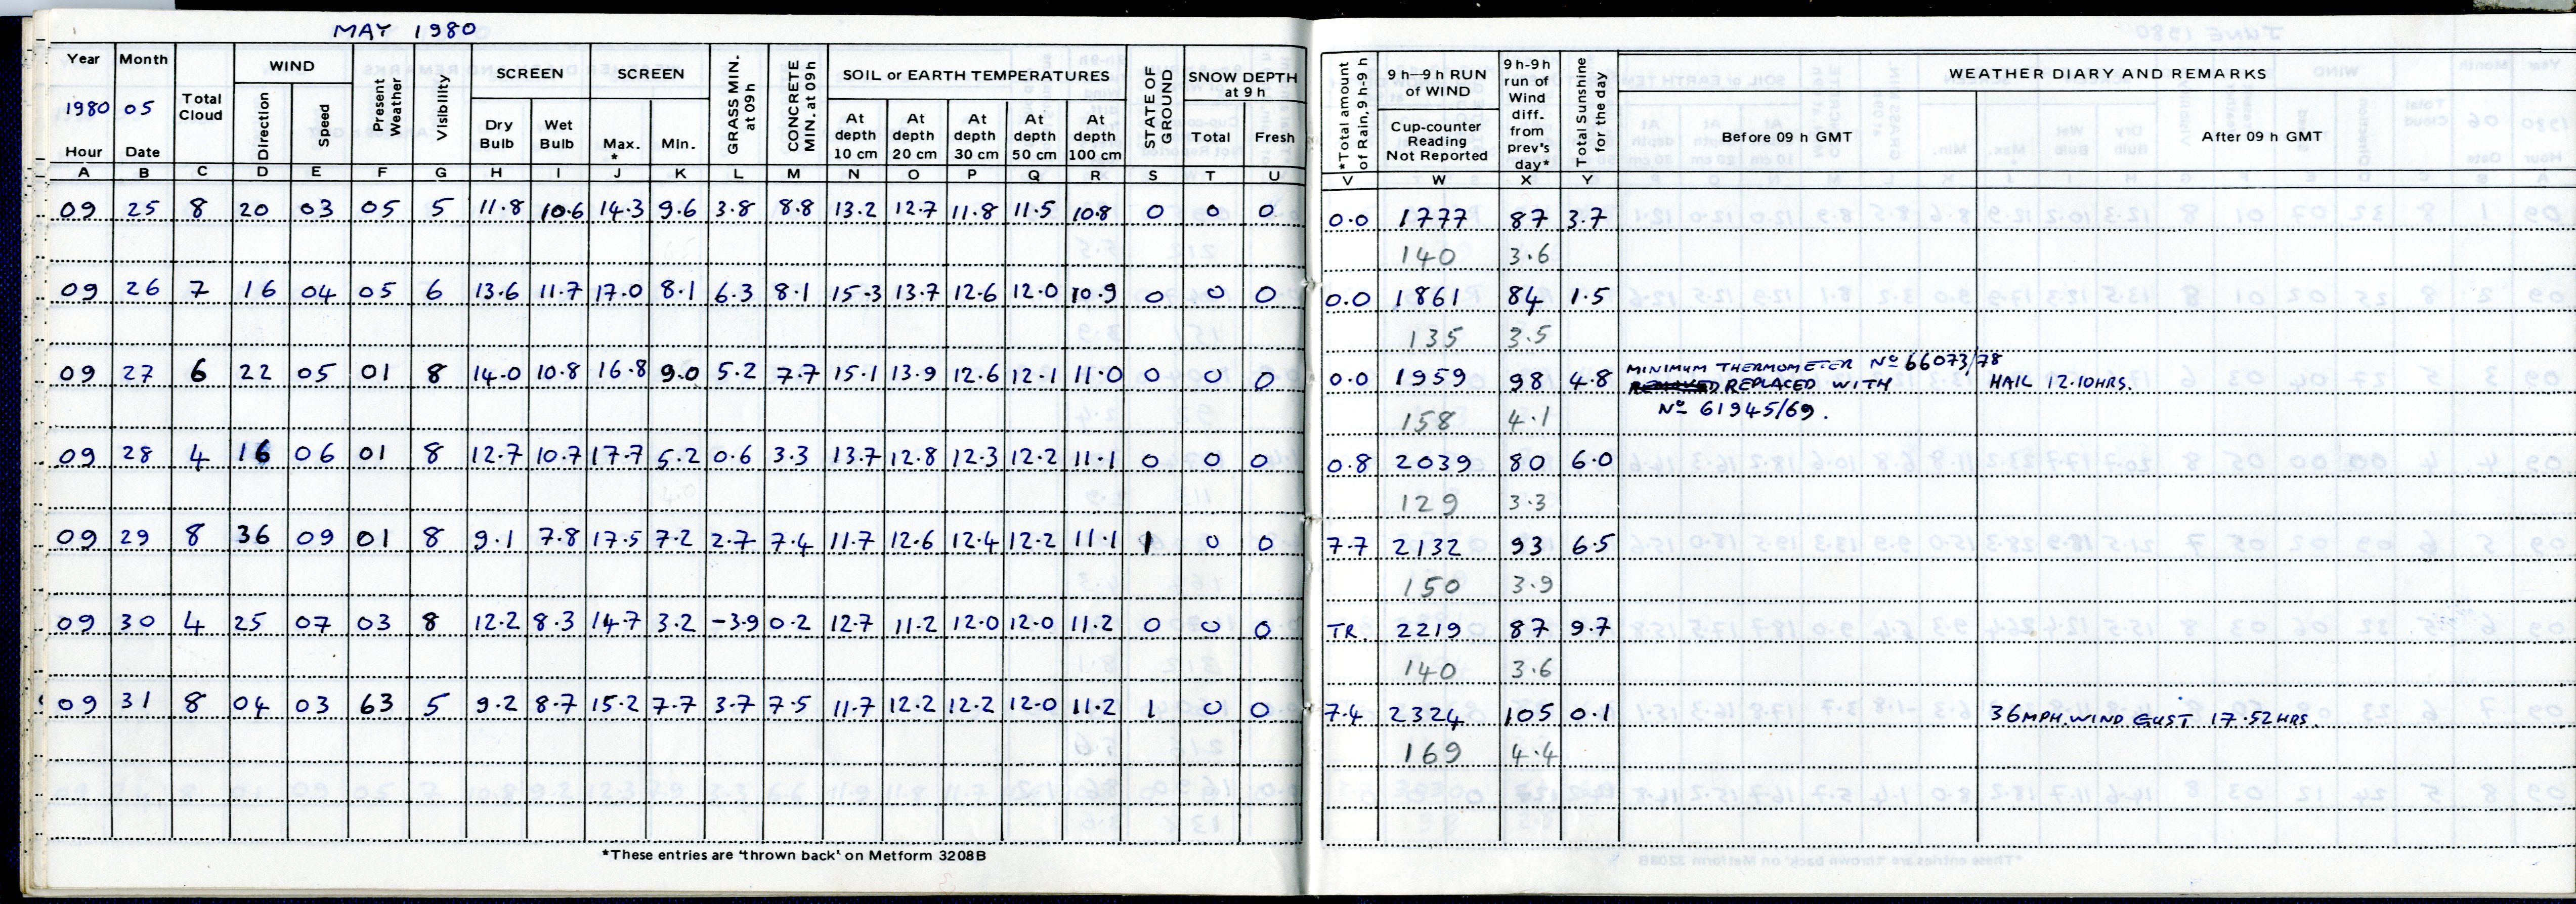 MAY 1980
Year Month Total Cloud WIND Present Weather Visibility SCREEN SCREEN GRASS MIN. at 09h CONCRETE MIN. at 09h SOIL or EARTH TEMPERATURES STATE OF GROUND SNOW DEPTH at 9 h *Total amount of Rain, 9h-9 h 9 h—9 h RUN of WIND 9 h-9h run of Wind diff. from prev's day* Total Sunshine for the day WEATHER DIARY AND REMARKS
1980 05 Direction Speed Dry Bulb Wet Bulb Max. * Min. At depth 10 cm At depth 20 cm At depth 30 cm At depth 50 cm At depth 100 cm Total Fresh Cup-counter Reading Not Reported Before 09 h GMT After 09 h GMT
Hour Date
A B C D E F G H I J K L M N O P Q R S T U V W X Y
09 25 8 20 03 05 5 11.8 10.6 14.3 9.6 3.8 8.8 13.2 12.7 11.8 11.5 10.8 0 0 0 0.0 1777 87 3.7
140 3.6
09 26 7 16 04 05 6 13.6 11.7 17.0 8.1 6.3 8.1 15.3 13.7 12.6 12.0 10.9 0 0 0 0.0 1861 84 1.5
135 3.5
09 27 6 22 05 01 8 14.0 10.8 16.8 9.0 5.2 7.7 15.1 13.9 12.6 12.1 11.0 0 0 0 0.0 1959 98 4.8 MINIMUM THERMOMETER Nº 66073/78
REPLACED WITH HAIL 12.10HRS.
158 4.1 Nº 61945/69.
09 28 4 16 06 01 8 12.7 10.7 17.7 5.2 0.6 3.3 13.7 12.8 12.3 12.2 11.1 0 0 0 0.8 2039 80 6.0
129 3.3
09 29 8 36 09 01 8 9.1 7.8 17.5 7.2 2.7 7.4 11.7 12.6 12.4 12.2 11.1 1 0 0 7.7 2132 93 6.5
150 3.9
09 30 4 25 07 03 8 12.2 8.3 14.7 3.2 -3.9 0.2 12.7 11.2 12.0 12.0 11.2 0 0 0 TR. 2219 87 9.7
140 3.6
09 31 8 04 03 63 5 9.2 8.7 15.2 7.7 3.7 7.5 11.7 12.2 12.2 12.0 11.2 1 0 0 7.4 2324 105 0.1 36MPH. WIND GUST 17.52HRS.
169 4.4
*These entries are 'thrown back' on Metform 3208B